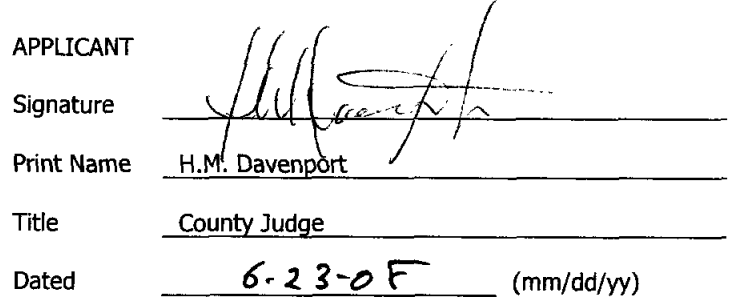 APPLICANT
Signature
Print Name H.M. Davenport
Title County Judge
Dated 6-23-0 (mm/dd/yy)